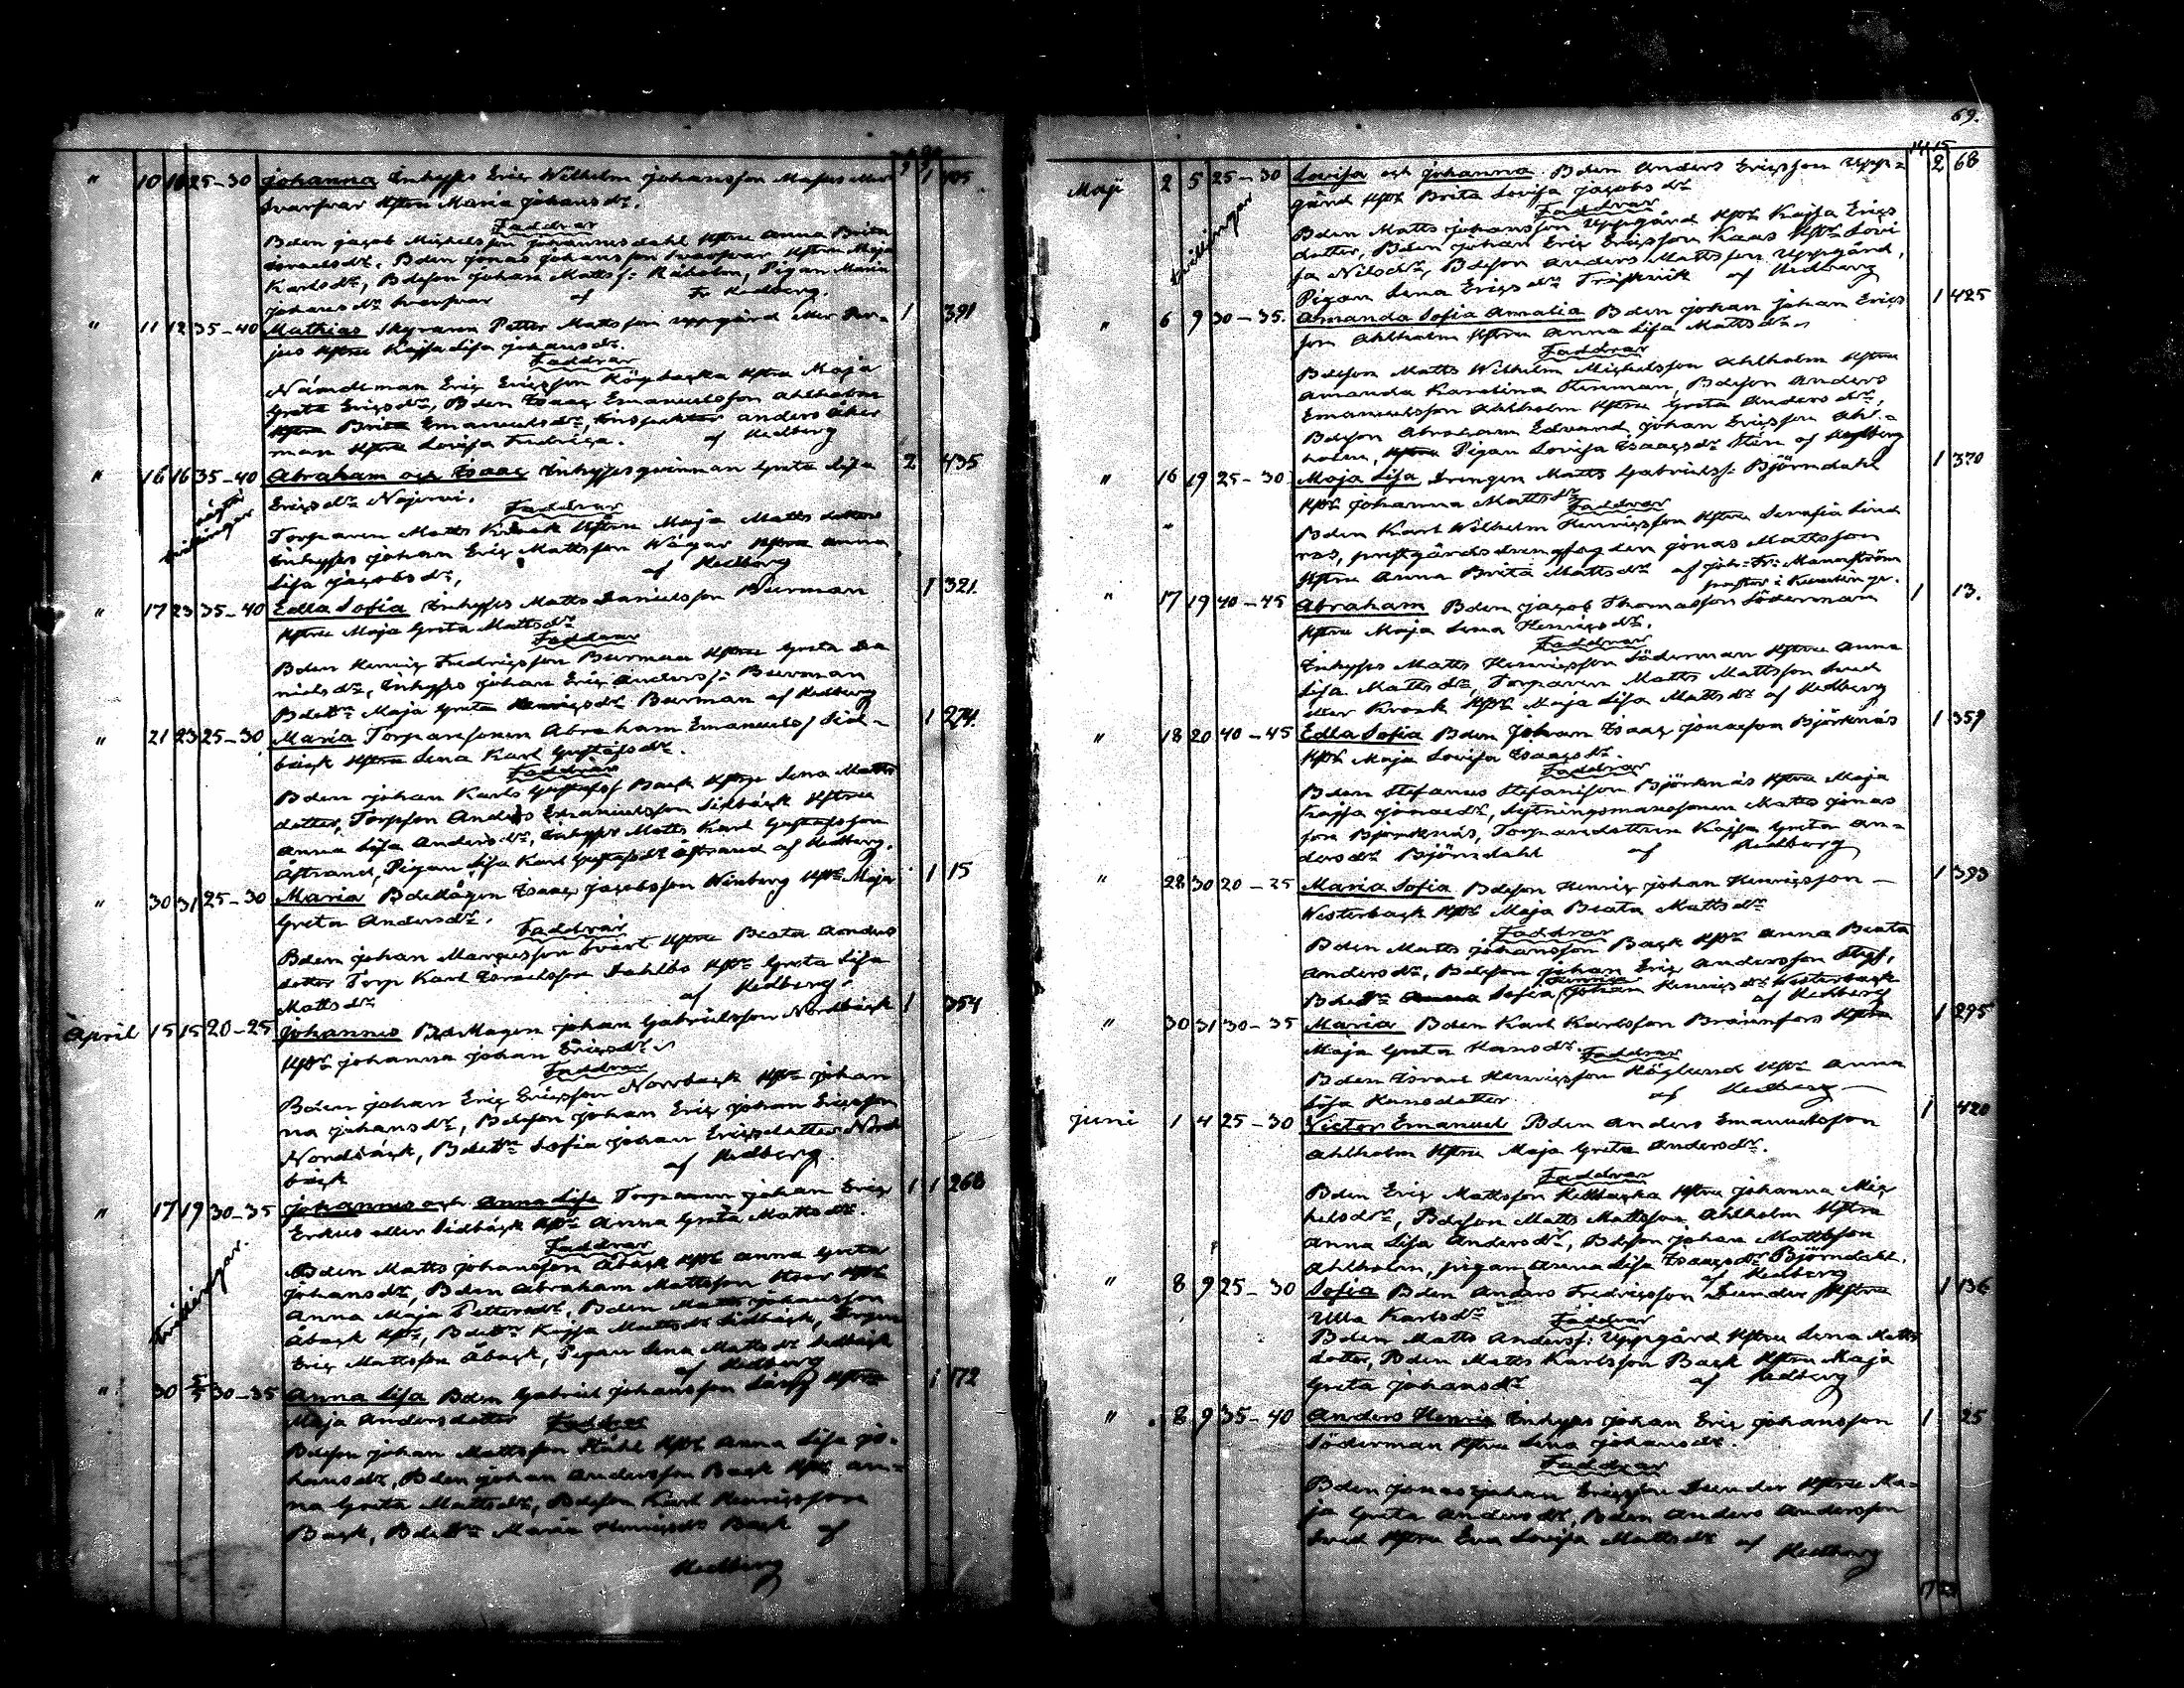 " 10 16 25-30 Johanna Inhyses Eric Wilhelm Johansson Masus eller 1 405
Svarfvar Hstru Maria Johansdr.
Faddrar
Bden Jacob Michelsson Johannesdahl Hstru Anna Brita
Israelsdr, Bden Jonas Johansson Svarfvar, Hstru Maja
Karlsdr, Bdeson Johan Matts s: Råholm, Pigan Maria
Johansdr Svarfvar af Fr Hedberg.
" 11 12 35-40 Mathias Skyraren Petter Mattsson Uppgård eller 1 391
Hstru Kajsa Lisa Johansdr.
Faddrar
Nämdeman Eric Ericsson Högbacka Hstru Maja
Greta Ericsdr, Bden Isaac Emanuelsson Ahlholm
Hstru Brita Emanuelsdr, Inspektor Anders Åker
man Hstru Lovisa Fredrica. af Hedberg
" 16 16 35-40 Abraham och Isaac Inhysesqvinnan Greta Lisa 2 435
Ericsdr Näjervi.
oägta tvillingar
Faddrar
Torparen Matts Krook Hstru Maja Matts dotter
Inhyses Johan Eric Mattsson Wägar Hstru Anna
Lisa Jacobsdr, af Hedberg
" 17 23 35-40 Edla Sofia Inhyses Matts Danielsson Burman 1 321
Hstru Maja Greta Mattsdr
Faddrar
Bden Henric Fredricsson Burman Hstru Greta Da
nielsdr, Inhyses Johan Eric Anders s: Burman
Bdedtr Maja Greta Henricsdr Burman af Hedberg
" 21 23 25-30 Maria Torparesonen Abraham Emanuels s Sid- 1 274.
bäck Hstru Lena Karl Gustafsdr.
Faddrar
Bden Johan Karls Gustafss Back Hstru Lena Matts
dotter, Torpson Anders Emanuelsson Sidbäck Hstru
Anna Lisa Andersdr, Inhyses Matts Karl Gustafsson
Åstrand, Pigan Lisa Karl Gustafsdr Åstrand af Hedberg.
" 30 31 25-30 Maria Bdemågen Isaac Jacobsson Winberg Hstr Maja 1 15
Greta Andersdr.
Faddrar
Bden Johan Marcusson Svart Hstru Beata Anders
dotter Torp Karl Israelsson Dahlbo Hstr Greta Lisa
Mattsdr af Hedberg.
April 15 15 20-25 Johannes Bdemågen Johan Gabrielsson Nordbäck 1 354
Hstr Johanna Johan Ericsdr
Faddrar
Bden Johan Eric Ericsson Norrback Hstr Johan
na Johansdr, Bdeson Johan Eric Johan Ericsson
Nordbäck, Bdedtr Sofia Johan Ericsdotter Nord
bäck af Hedberg.
" 17 19 30-35 Johannes och Anna Lisa Torparen Johan Eric 1 1 260
Erkus eller Sidbäck Hstr Anna Greta Mattsdr.
Tvillingar.
Faddrar
Bden Matts Johansson Åback Hstr Anna Greta
Johansdr, Bden Abraham Mattsson Hstr
Anna Maja Pettersdr, Bden Matts Johansson
Åback Hstr, Bdedtr Kajsa Mattsdr Sidbäck,
Eric Mattsson Åback, Pigan Lena Mattsdr Sidbäck
af Hedberg
" 30 5/5 30-35 Anna Lisa Bden Gabriel Johansson Hstru 1 172
Maja Andersdotter Faddrar
Bdeson Johan Mattsson Ståhl Hstr Anna Lisa Jo-
hansdr, Bden Johan Andersson Back Hstr An-
na Greta Mattsdr, Bdeson Karl Henricsson
Back, Bdedtr Maria Henricsdr Back af
Hedberg
69.
Maji 2 5 25-30 Lovisa och Johanna Bden Anders Ericsson Upp- 2 68
gård Hstr Brita Lovisa Jacobsdr
tvillingar
Faddrar
Bden Matts Johansson Uppgård Hstr Kajsa Erics
dotter, Bden Johan Eric Ericsson Kaas Hstr Lovi
sa Nilsdr, Bdeson Anders Mattsson Uppgård,
Pigan Lena Ericsdr af Hedberg
" 6 9 30-35. Amanda Sofia Amalia Bden Johan Johan Erics 1 425
son Ahlholm Hstru Anna Lisa Mattsdr
Faddrar
Bdeson Matts Wilhelm Michelsson Ahlholm Hstru
Amanda Karolina Stenman, Bdeson Anders
Emanuelsson Ahlholm Hstru Greta Andersdr,
Bdeson Abraham Edvard Johan Ericsson Ahl-
holm, Pigan Lovisa Isaacsdr Sten af Hedberg
" 16 19 25-30 Maja Lisa Drengen Matts Gabriels s: Björndahl 1 370
Hstr Johanna Mattsdr
Faddrar
Bden Karl Wilhelm Henricsson Hstru Serafia Lind
ros, prestgårdsdrengsfogden Jonas Mattsson
Hstru Anna Brita Mattsdr af Joh: Fr: Mannström
pastor i
" 17 19 40-45 Abraham Bden Jacob Thomasson Söderman 1 13.
Hstru Maja Lena Henricsdr.
Faddrar
Inhyses Matts Henricsson Söderman Hstru Anna
Lisa Mattsdr, Torparen Matts Mattsson Sved
eller Krook Hstr Maja Lisa Mattsdr af Hedberg
" 18 20 40-45 Edla Sofia Bden Johan Isaac Jonasson Björknäs 1 359
Hstr Maja Lovisa Isaacsdr.
Faddrar
Bden Stefanus Stefansson Björknäs Hstru Maja
Kajsa Jonaedr, Sytningsmanssonen Matts Jonas
son Björknäs, Torparedottren Kajsa Greta An-
dersdr Björndahl af Hedberg
" 28 30 20-25 Maria Sofia Bdeson Henric Johan Henricsson - 1 393
Westerback Hstr Maja Beata Mattsdr
Faddrar
Bden Matts Johansson Back Hstr Anna Beata
Andersdr, Bdeson Johan Eric Andersson
Bdedtr Anna Sofia Johan Henricsdr Westerback
af Hedberg
" 30 31 30-35 Maria Bden Karl Karlsson Brännfors Hstru 1 295
Maja Greta Hansdr. Faddrar
Bden Israel Henricsson Höglund Hstr Anna
Lisa Hansdotter af Hedberg
Juni 1 4 25-30 Victor Emanuel Bden Anders Emanuelsson 1 420
Ahlholm Hstru Maja Greta Andersdr.
Faddrar
Bden Eric Mattsson Hstru Johanna Mic
helsdr, Bdeson Matts Mattsson Ahlholm Hstru
Anna Lisa Andersdr, Bdeson Johan Mattsson
Ahlholm, pigan Anna Lisa Isaacsdr Björndahl.
af Hedberg
" 8 9 25-30 Sofia Bden Anders Fredricsson Sunder Hstru 1 136
Ulla Karlsdr Faddrar
Bden Matts Anders s: Uppgård Hstru Lena Matts
dotter, Bden Matts Karlsson Back Hstru Maja
Greta Johansdr af Hedberg
" 8 9 35-40 Anders Henric Inhyses Johan Eric Johansson 1 25
Söderman Hstru Lena Johansdr.
Faddrar
Bden Jonas Johan Ericsson Sunder Hstru Ma-
ja Greta Andersdr, Bden Anders Andersson
Sved Hstru Eva Lovisa Mattsdr af Hedberg